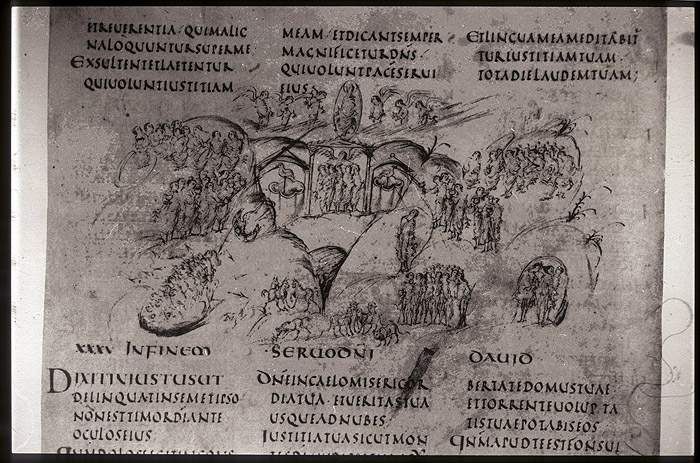 ETREUERENTIA· QUIMALIC
NALOQUUNTURSUPERME·
EXSULTENTETLAETENTUR
QUIUOLUNTIUSTITIAM
MEAM· ETDICANTSEMPER
MAGNIFICETURDN̄S·
QUIUOLUNTPACĒSERUI
EIUS
ETLINGUAMEAMEDITABIT
TURIUSTITIAMTUAM·
TOTADIELAUDEMTUAM;
XXXV INFINEM SERUODN̄I DAUID
DIXITINIUSTUSUT
DELINQUATINSEMETIPSO·
NŌNESTTIMORDĪANTE
OCULOSEIUS
DN̄EINCAELOMISERICOR
DIATUA· ETUERITASTUA
USQUEADNUBES·
IUSTITIATUASICUTMON
BERTATEDOMUSTUAE·
ETTORRENTEUOLUPTA
TISTUAEPOTABISEOS·
QNMAPUDTEESTFONSUI